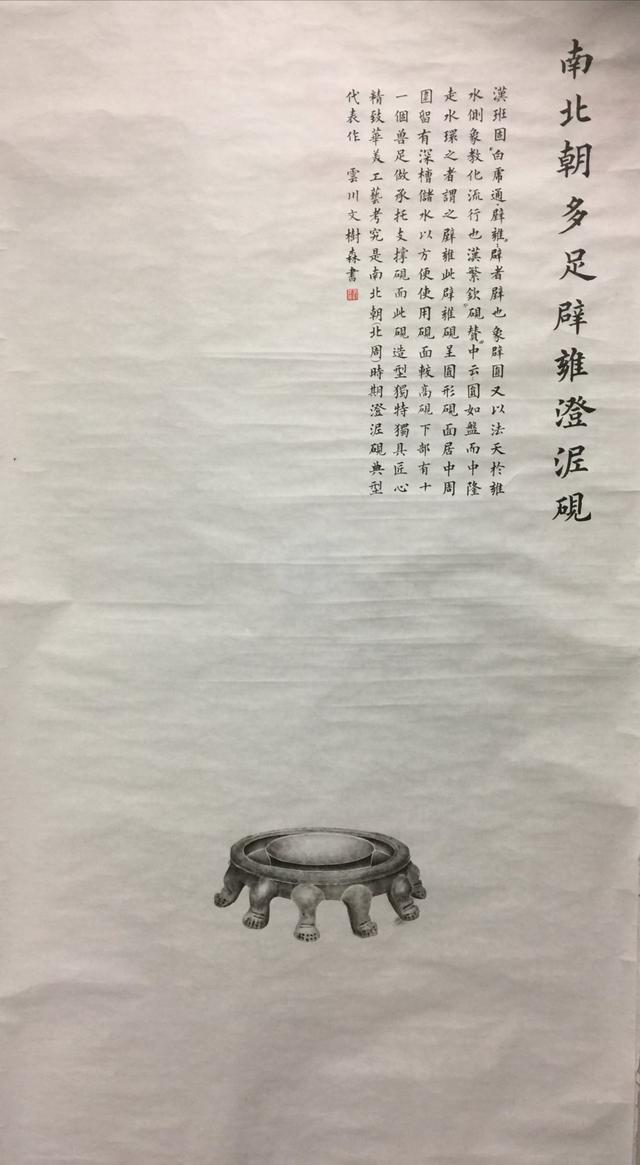 南北朝多足辟雍澄泥硯
漢班固“白虎通·辟雍”：辟者辟也象辟圓又以法天於雍
水側象教化流行也漢繁欽“硯贊”中云：圓如盤而中隆
走水環之者謂之辟雍此辟雍硯呈圓形硯面居中周
圍留有深槽儲水以方便使用硯面較高硯下部有十
一個兽足做承托支撐硯而此硯造型獨特獨具匠心
精致華美工藝考究是南北朝(北周)時期澄泥硯典型
代表作　雲川文樹森書